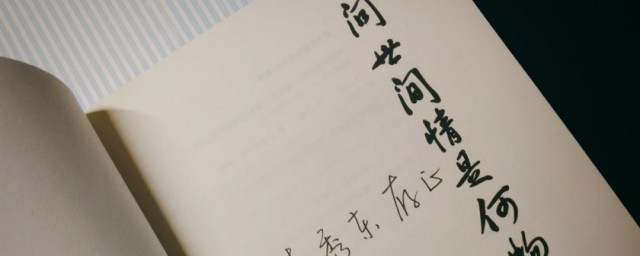 问世间情是何物
秀东 存正